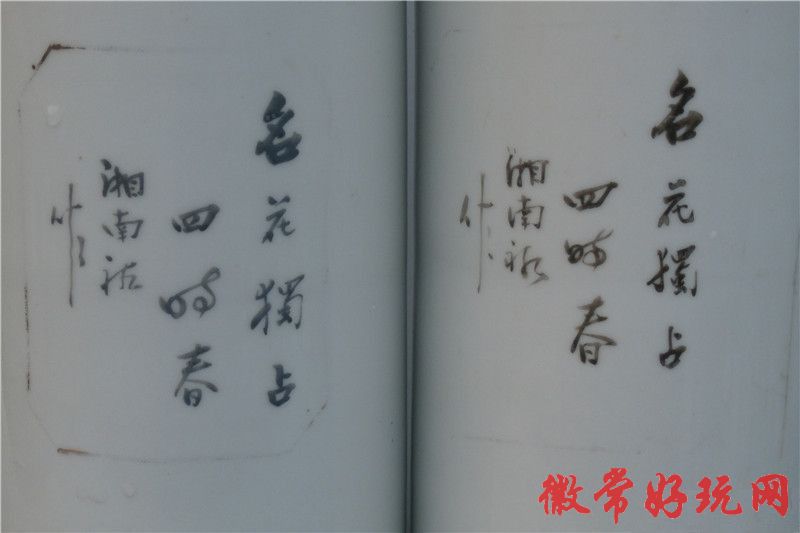 名花獨占
四時春
湘南
作
名花獨占
四時春
湘南
作
徽常好玩网